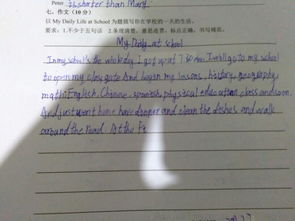 Peter is shorter than Mary.
七、作文(10分)
以 My Daily Life at School 为题描写你在学校的一天的生活。
要求:1.不少于五句话 2.条理清楚,意思连贯,标点正确,书写规范。
My Daily at school
In my school's the whole day. I got up at 7:30 am. I will go to my school
to open my class gate And began my lessons, history, geography,
math English, Chinese, spanish, physical education class and soon.
And just went home have dinner and clean the dishes and walk
around the road. At the